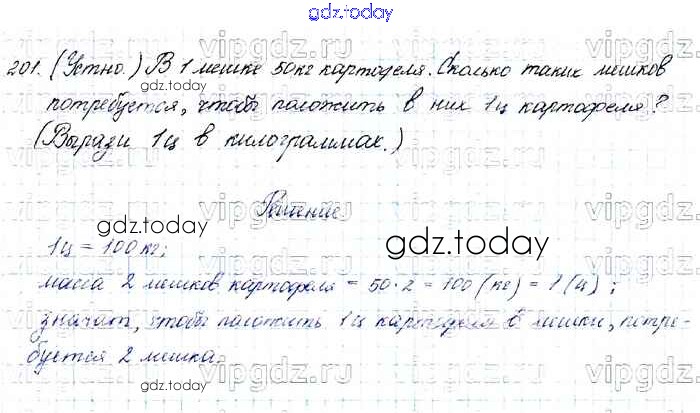 gdz.today
201. (Устно.) В 1 мешке 50 кг картофеля. Сколько таких мешков
gdz.today
потребуется, чтобы положить в них 1ц картофеля?
(Вырази 1ц в килограммах.)
Решение.
gdz.today
1ц = 100 кг;
gdz.today
масса 2 мешков картофеля = 50·2 = 100 (кг) = 1 (ц) ;
значит, чтобы положить 1ц картофеля в мешки, потре-
буется 2 мешка.
gdz.today